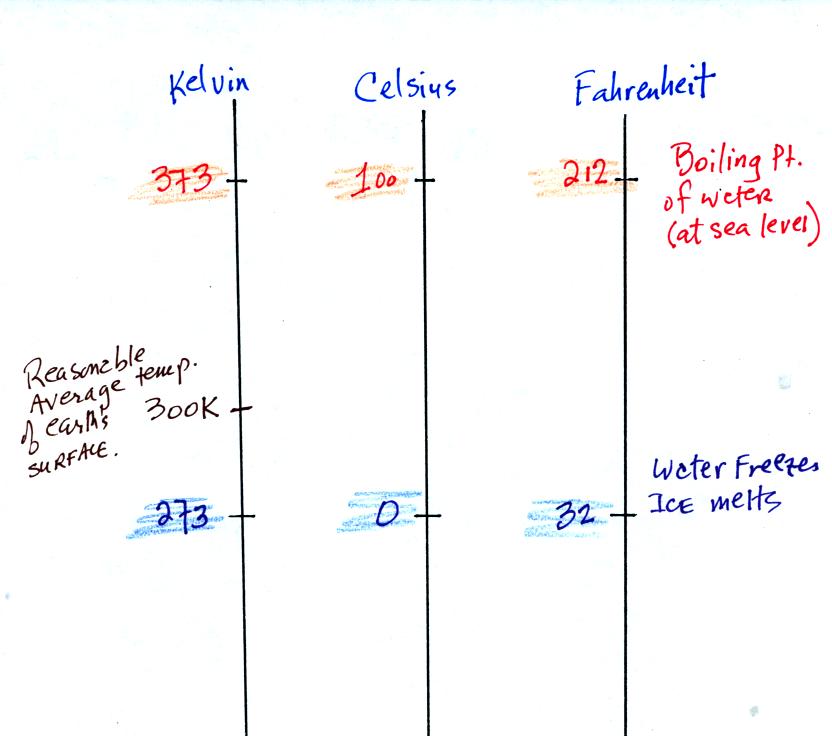 Kelvin Celsius Fahrenheit
373 100 212
Boiling Pt.
of water
(at sea level)
Reasonable
Average temp.
of earth's
SURFACE.
300K
273 0 32
Water Freezes
ICE melts